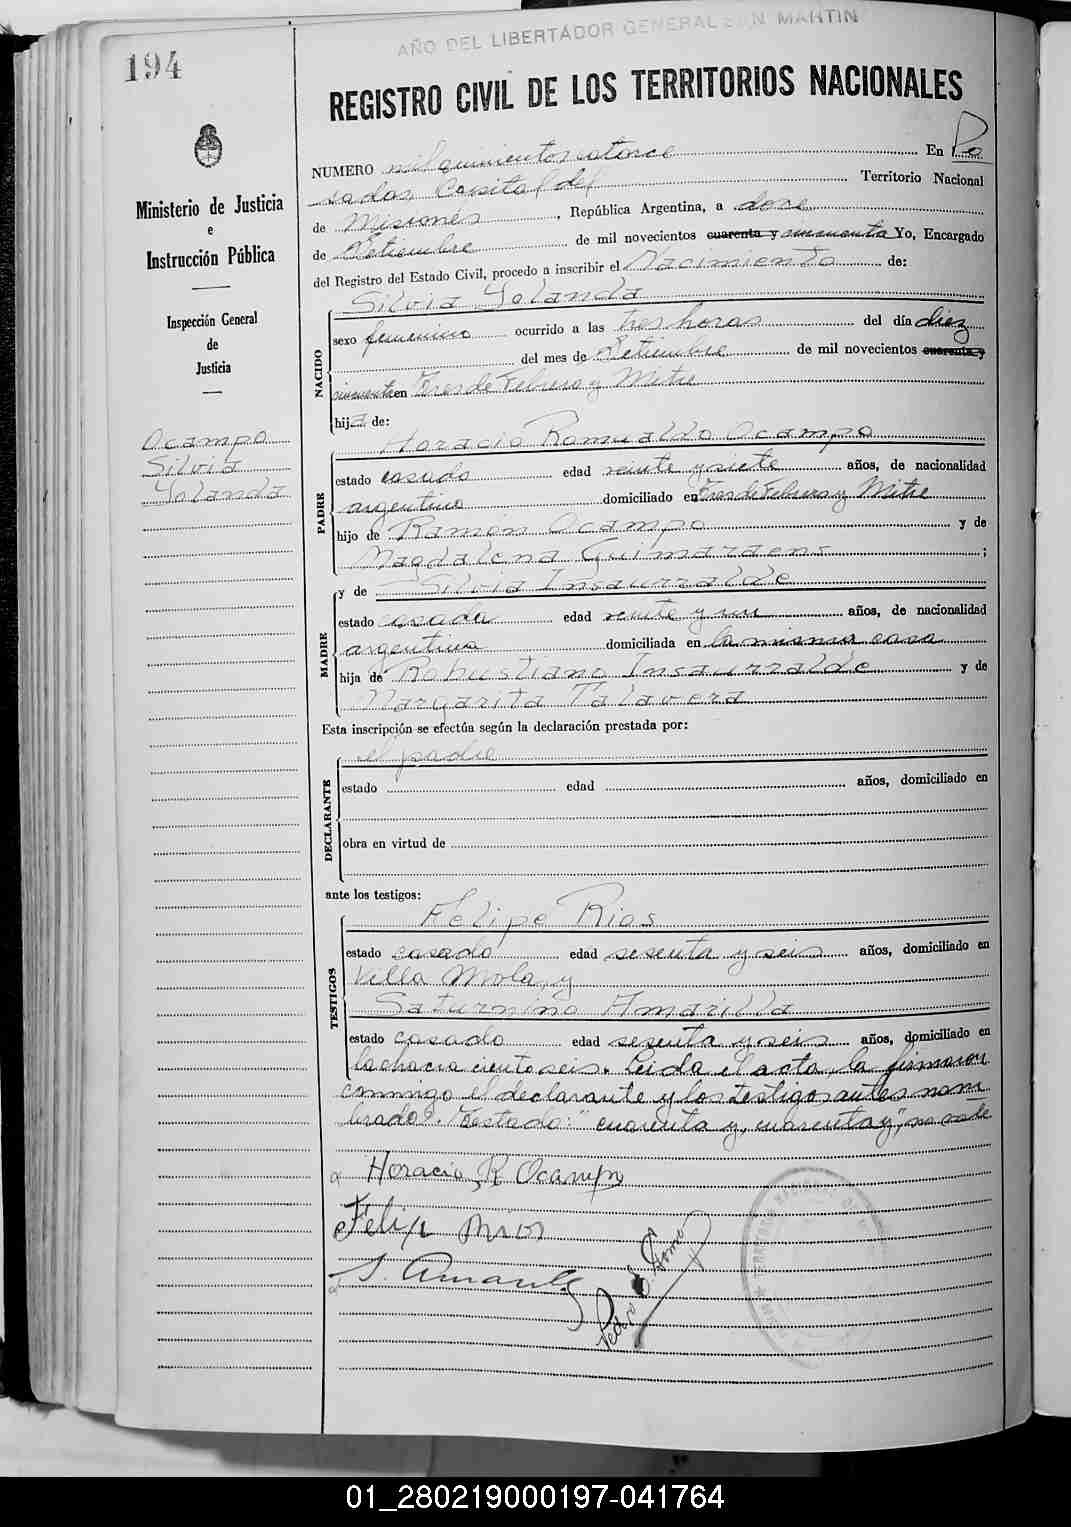 AÑO DEL LIBERTADOR GENERAL SAN MARTIN
194
REGISTRO CIVIL DE LOS TERRITORIOS NACIONALES
Ministerio de Justicia
e
Instrucción Pública
Inspección General
de
Justicia
Ocampo
Silvia
Yolanda
NUMERO mil quinientos catorce En Po
sadas, Capital del Territorio Nacional
de Misiones, República Argentina, a doce
de Setiembre de mil novecientos cuarenta y cincuenta Yo, Encargado
del Registro del Estado Civil, procedo a inscribir el Nacimiento de:
NACIDO
Silvia Yolanda
sexo femenino ocurrido a las tres horas del día diez
del mes de Setiembre de mil novecientos cuarenta y
cincuenta en Tres de Febrero y Mitre
hija de:
PADRE
Horacio Romualdo Ocampo
estado casado edad veinte y siete años, de nacionalidad
argentino domiciliado en Tres de Febrero y Mitre
hijo de Ramón Ocampo y de
Magdalena Guimaraens;
MADRE
y de Silvia Insaurralde
estado casada edad veinte y un años, de nacionalidad
argentina domiciliada en la misma casa
hija de Robustiano Insaurralde y de
Margarita Talavera
Esta inscripción se efectúa según la declaración prestada por:
DECLARANTE
el padre
estado edad años, domiciliado en
obra en virtud de
ante los testigos:
TESTIGOS
Felipe Rios
estado casado edad sesenta y seis años, domiciliado en
Villa Mola, y
Saturnino Amarilla
estado casado edad sesenta y seis años, domiciliado en
la chacra ciento seis. Leida el acta, la firmaron
conmigo el declarante y los testigos antes nom
brados. Testado: "cuarenta y, cuarenta y", no vale
Horacio R Ocampo
Felipe Rios
S. Amarilla
Pedro
TERRITORIO NACIONAL DE
01_280219000197-041764